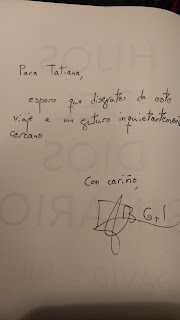 Para Tatiana,
espero que disfrutes de este
viaje a un futuro inquietantemente
cercano.
Con cariño,